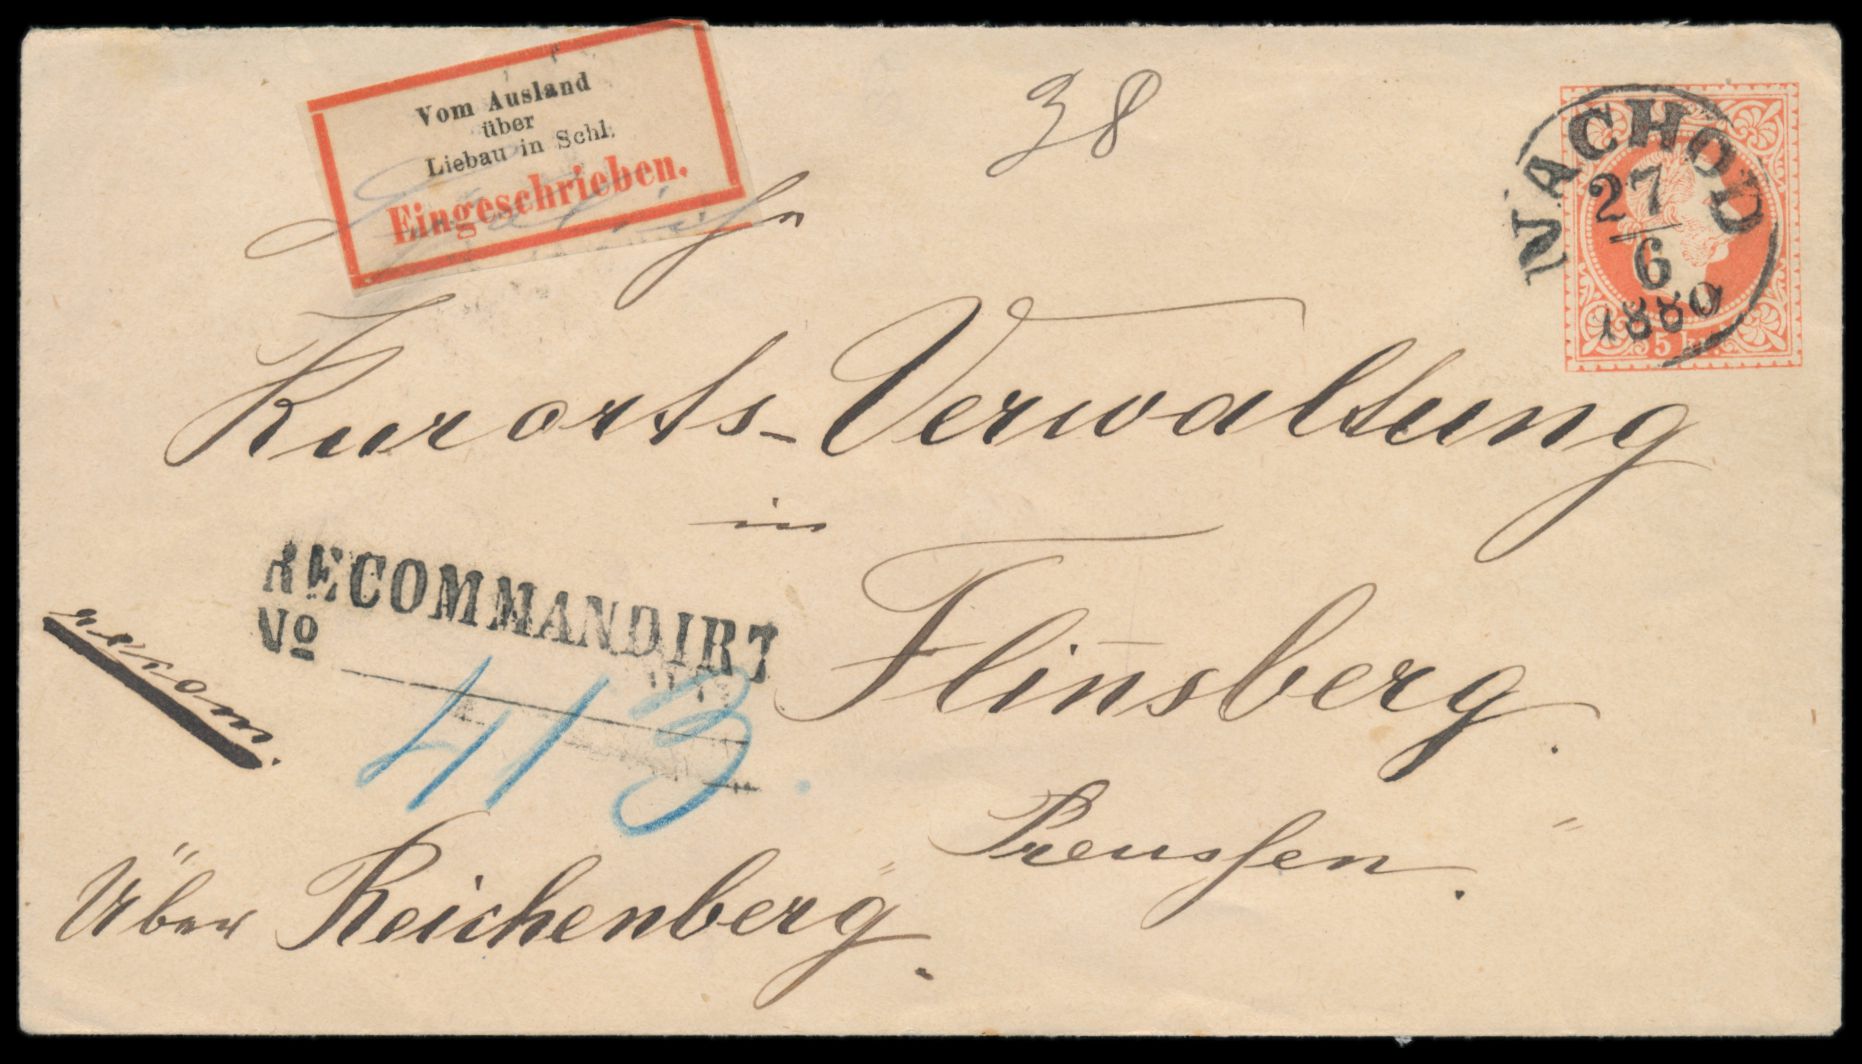 Vom Ausland
über
Liebau in Schl.
Eingeschrieben.
38
NACHOD
27
6
1880
5 kr.
Kurorts-Verwaltung
in
Flinsberg.
Preussen.
RECOMMANDIRT
No
413
recom.
Über Reichenberg.